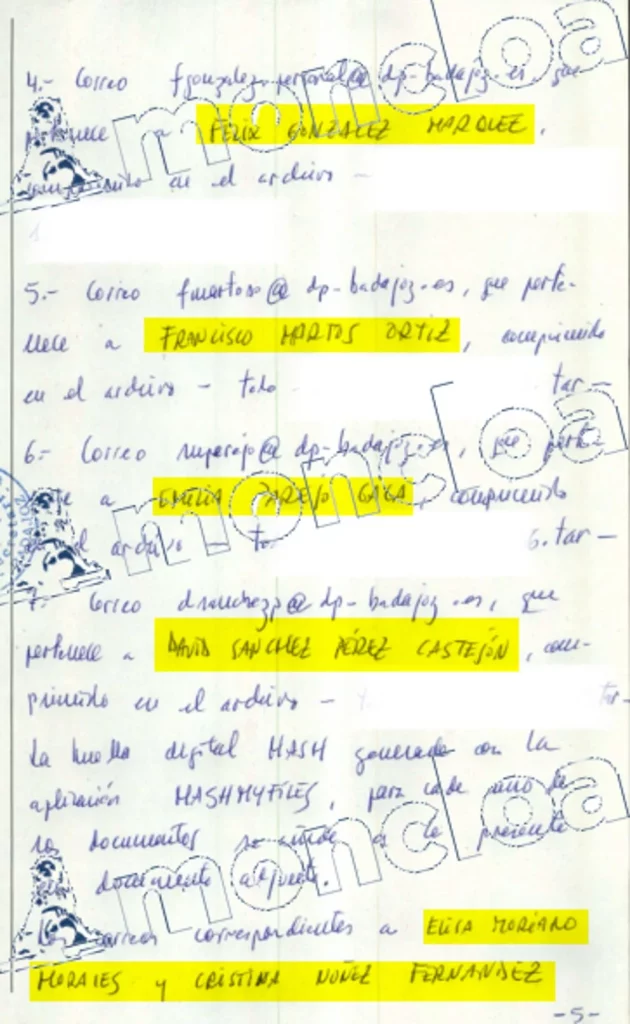 4.- Correo fgonzalez.personal@dp-badajoz.es, que
pertenece a FELIX GONZALEZ MARQUEZ,
comprimido en el archivo -
5.- Correo fmartoso@dp-badajoz.es, que perte-
nece a FRANCISCO MARTOS ORTIZ, comprimido
en el archivo - todo tar-
6- Correo @dp-badajoz.es, que perte
a EMILIA PAREJO GAGA, comprimido
el archivo - 6.tar-
7- Correo dsanchezp@dp-badajoz.es, que
pertenece a DAVID SANCHEZ PÉREZ CASTEJÓN, com-
primido en el archivo - tar-
La huella digital HASH generada con la
aplicación HASHMYFILES, para cada uno de
los documentos se a la presente
documento adjunto.
Los correos correspondientes a ELISA MORIANO
MORALES y CRISTINA NÚÑEZ FERNANDEZ
-5-
moncloa
moncloa
moncloa